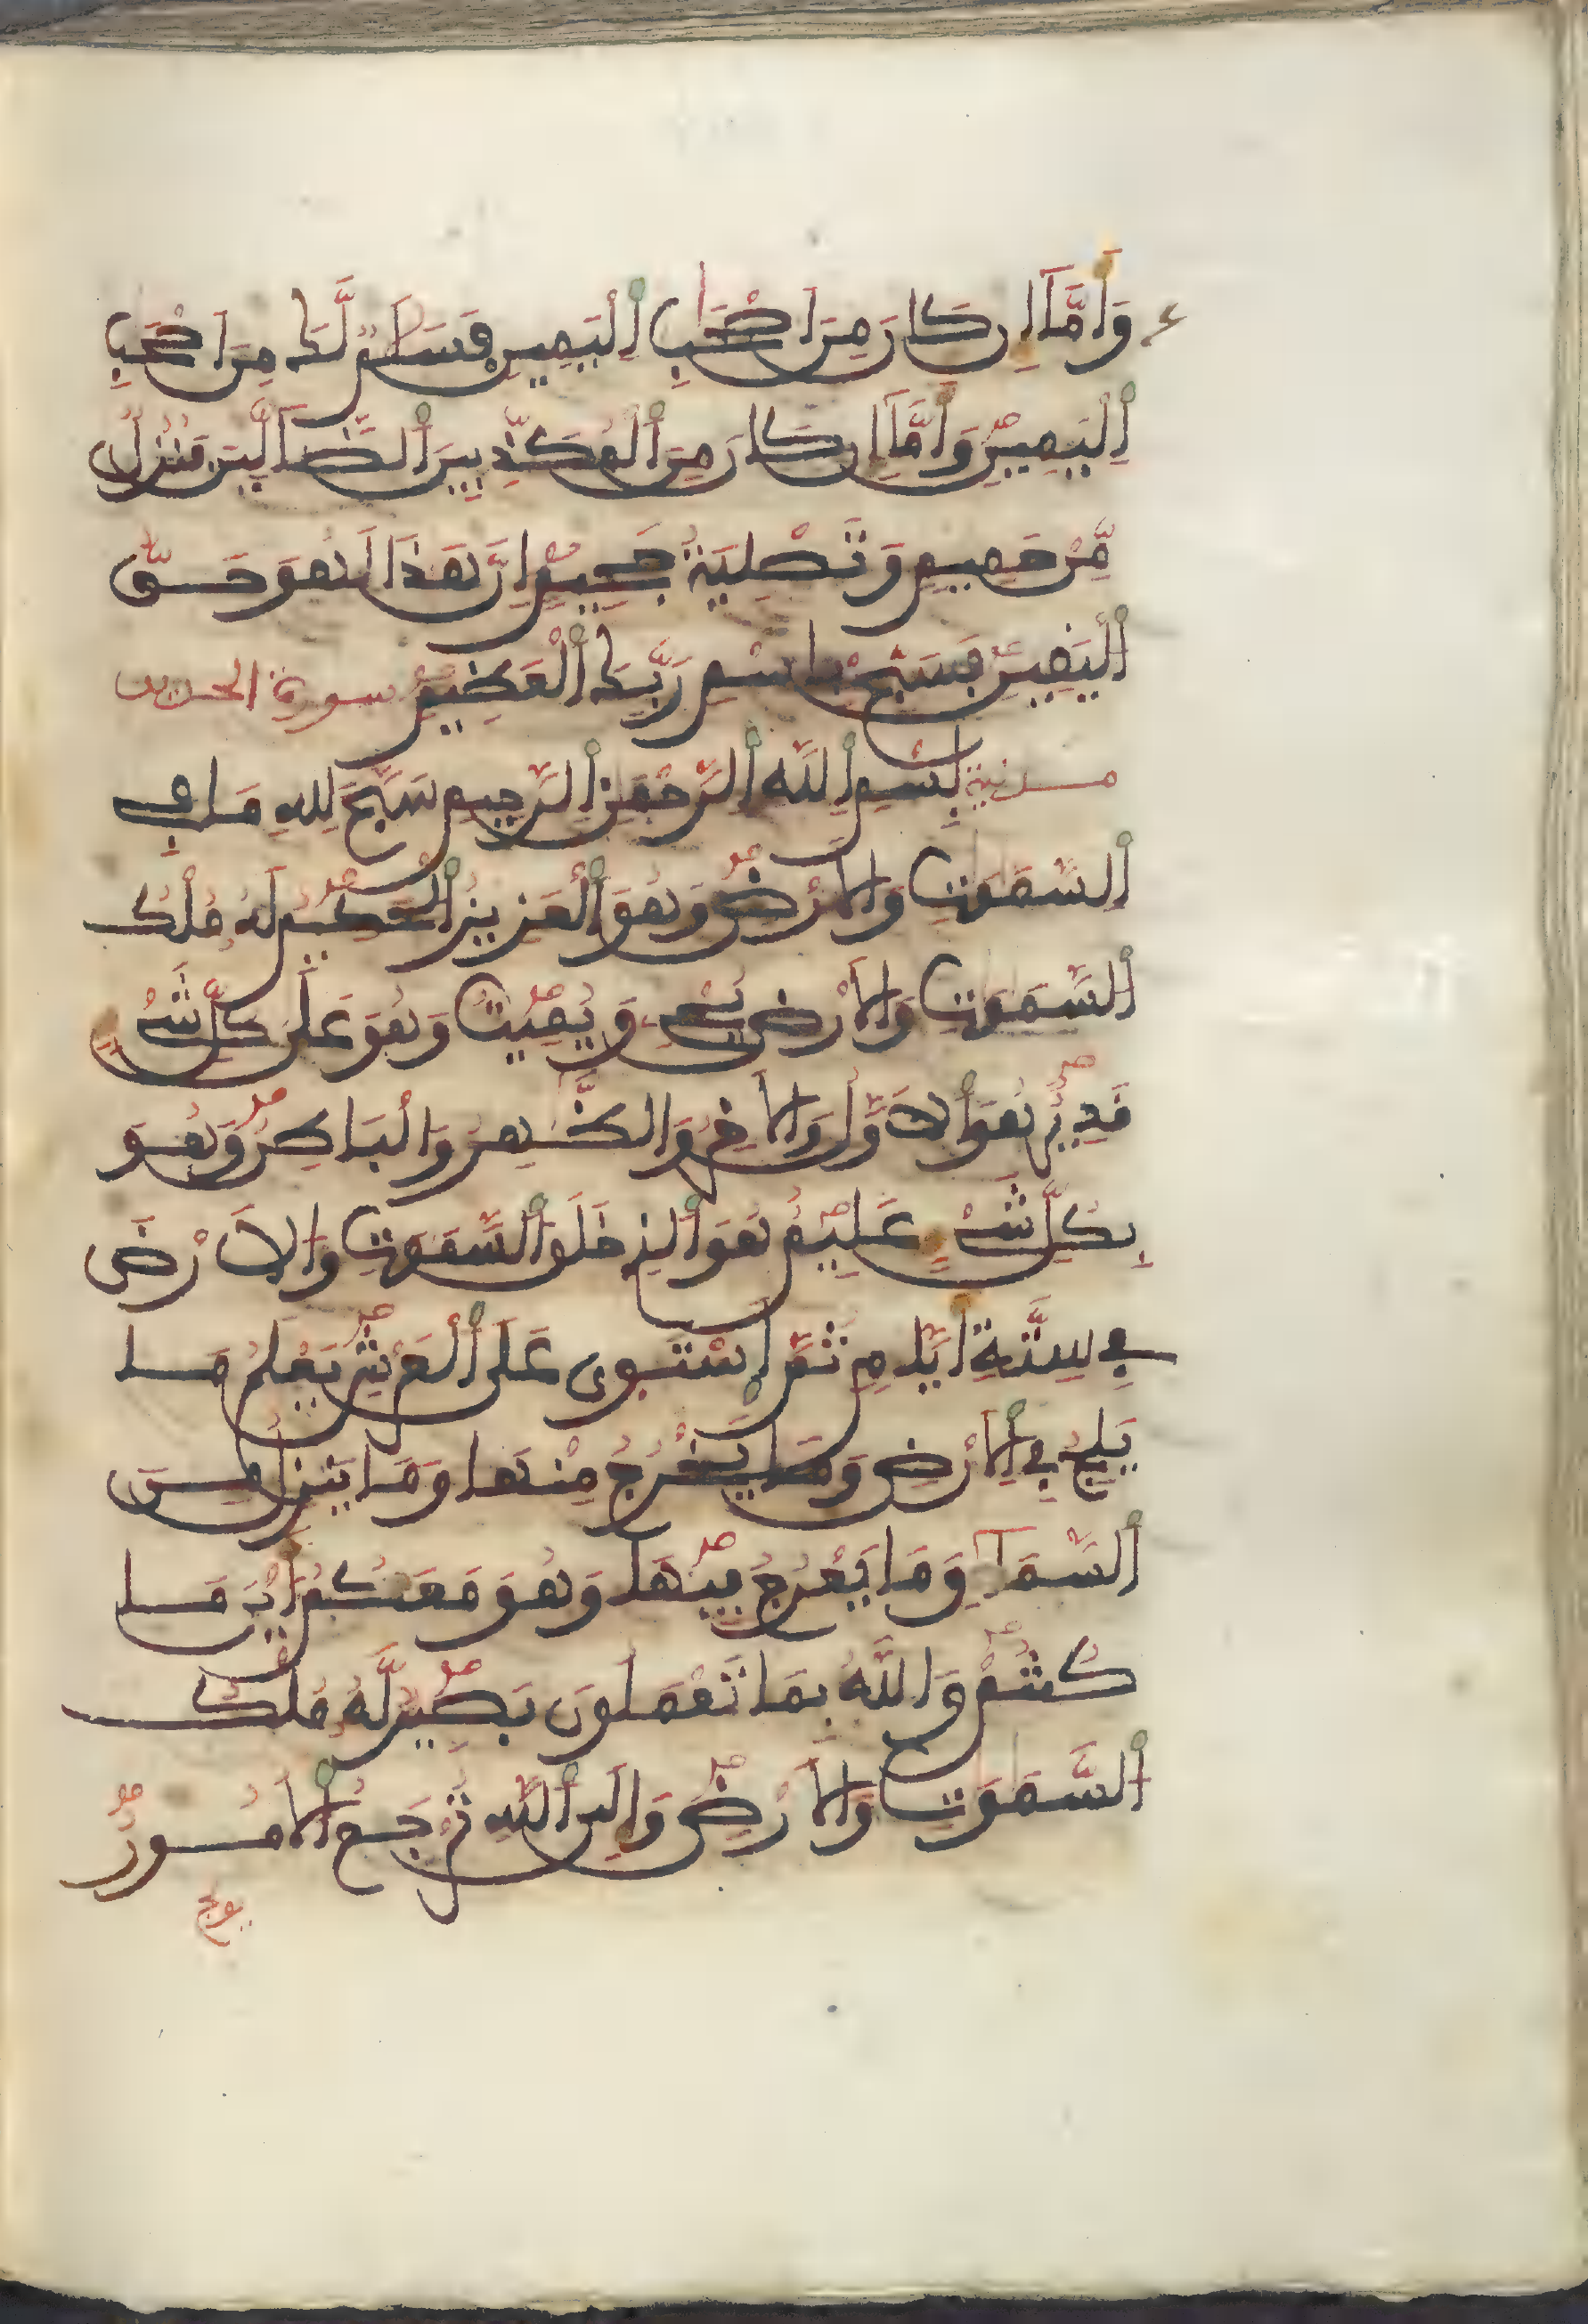 وَأَمَّآ إِن كَانَ مِنَ اَصْحَٰبِ اِ۬لْيَمِينِ فَسَلَٰمٞ لَّكَ مِنَ اَصْحَٰبِ
اِ۬لْيَمِينِ وَأَمَّآ إِن كَانَ مِنَ اَ۬لْمُكَذِّبِينَ اَ۬لضَّآلِّينَ فَنُزُلٞ
مِّنْ حَمِيمٖ وَتَصْلِيَةُ جَحِيمٍ اِنَّ هَٰذَا لَهُوَ حَقُّ
اُ۬لْيَقِينِ فَسَبِّحْ بِاسْمِ رَبِّكَ اَ۬لْعَظِيمِ سورة الحديد
مدنية بِسْمِ اِ۬للَّهِ اِ۬لرَّحْمَٰنِ اِ۬لرَّحِيمِ سَبَّحَ لِلهِ مَا فِے
اِ۬لسَّمَٰوَٰتِ وَالَارْضِ وَهُوَ اَ۬لْعَزِيزُ اُ۬لْحَكِيمُ لَهُۥ مُلْكُ
اُ۬لسَّمَٰوَٰتِ وَالَارْضِ يُحْيِۦ وَيُمِيتُ وَهُوَ عَلَىٰ كُلِّ شَےْءٖ
قَدِيرٌ هُوَ اَ۬لَاوَّلُ وَالَاخِرُ وَالظَّٰهِرُ وَالْبَاطِنُ وَهُوَ
بِكُلِّ شَےْءٍ عَلِيمٌ هُوَ اَ۬لذِے خَلَقَ اَ۬لسَّمَٰوَٰتِ وَالَارْضَ
فِے سِتَّةِ أَيَّامٖ ثُمَّ اَ۪سْتَوَىٰ عَلَى اَ۬لْعَرْشِ يَعْلَمُ مَا
يَلِجُ فِے اِ۬لَارْضِ وَمَا يَخْرُجُ مِنْهَا وَمَا يَنزِلُ مِنَ
اَ۬لسَّمَآءِ وَمَا يَعْرُجُ فِيهَا وَهُوَ مَعَكُمُ أَيْنَ مَا
كُنتُمْ وَاللَّهُ بِمَا تَعْمَلُونَ بَصِيرٞ لَّهُۥ مُلْكُ
اُ۬لسَّمَٰوَٰتِ وَالَارْضِ وَإِلَى اَ۬للَّهِ تُرْجَعُ اُ۬لُامُورُ
يولج